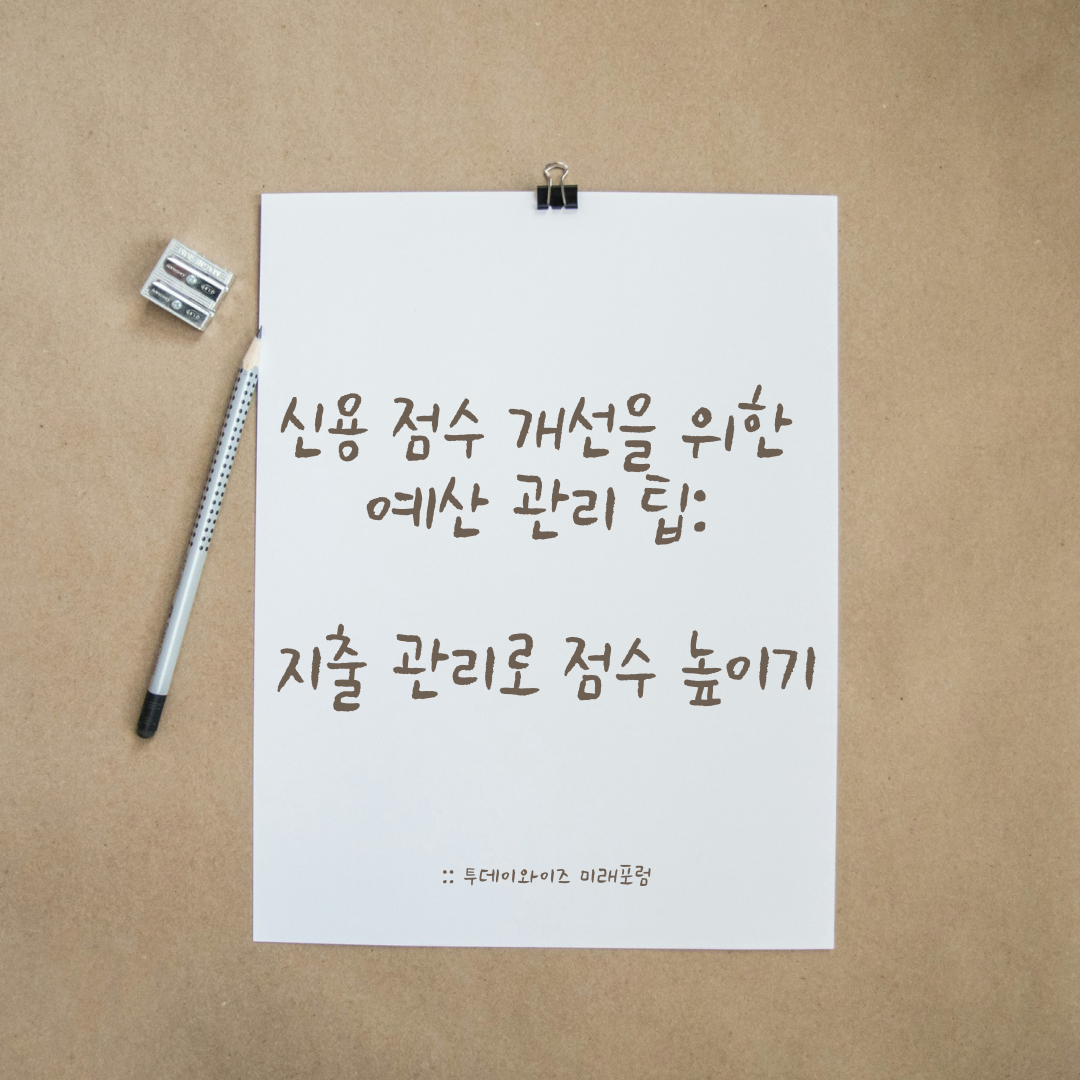 신용 점수 개선을 위한
예산 관리 팁:
지출 관리로 점수 높이기
:: 투데이와이즈 미래포럼